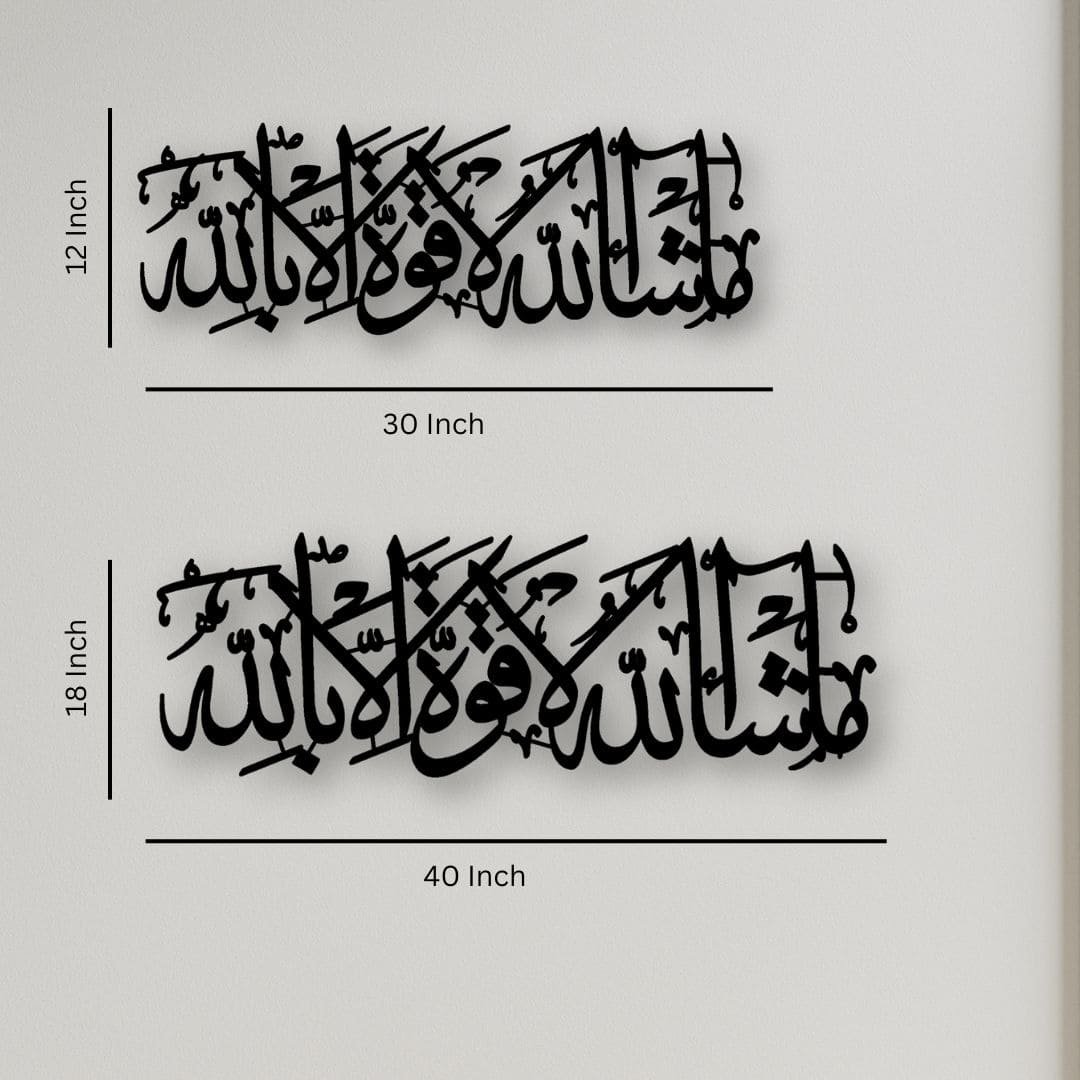 ما شاء الله لا قوة إلا بالله
12 Inch
30 Inch
ما شاء الله لا قوة إلا بالله
18 Inch
40 Inch